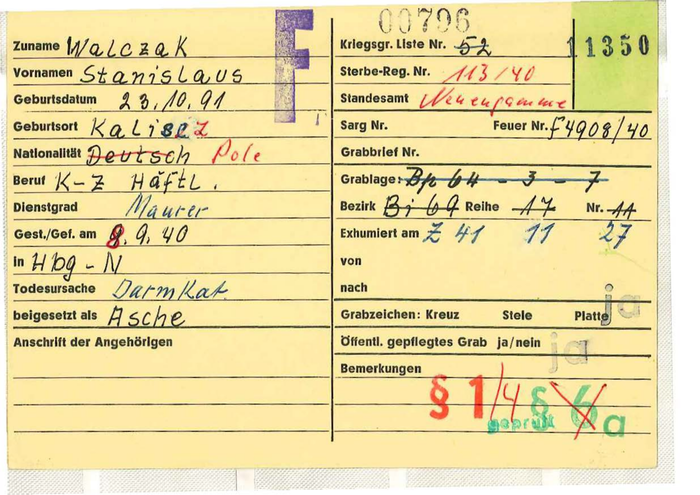 00796
11350
F
Zuname Walczak
Vornamen Stanislaus
Geburtsdatum 23.10.91
Geburtsort Kalisez
Nationalität Deutsch Pole
Beruf K-Z Häftl.
Dienstgrad Maurer
Gest./Gef. am 8.9.40
in Hbg-N
Todesursache Darmkat.
beigesetzt als Asche
Anschrift der Angehörigen
Kriegsgr. Liste Nr. 52
Sterbe-Reg. Nr. 113/40
Standesamt Neuengamme
Sarg Nr. Feuer Nr. F4908/40
Grabbrief Nr.
Grablage: Bp 64 - 3 - 7
Bezirk Bi 69 Reihe 17 Nr. 11
Exhumiert am Z 41 11 27
von
nach
ja
Grabzeichen: Kreuz Stele Platte
Öffentl. gepflegtes Grab ja/nein ja
Bemerkungen
§ 1/4 § 6 a
geprüft